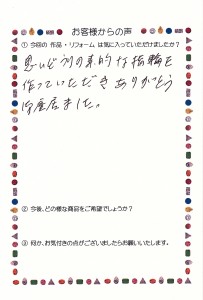 お客様からの声
① 今回の 作品・リフォーム は気に入っていただけましたか?
思いどうりの素的な指輪を
作っていただきありがとう
御座居ました。
② 今後、どの様な商品をご希望でしょうか?
③ 何か、お気付きの点がございましたらお願いいたします。